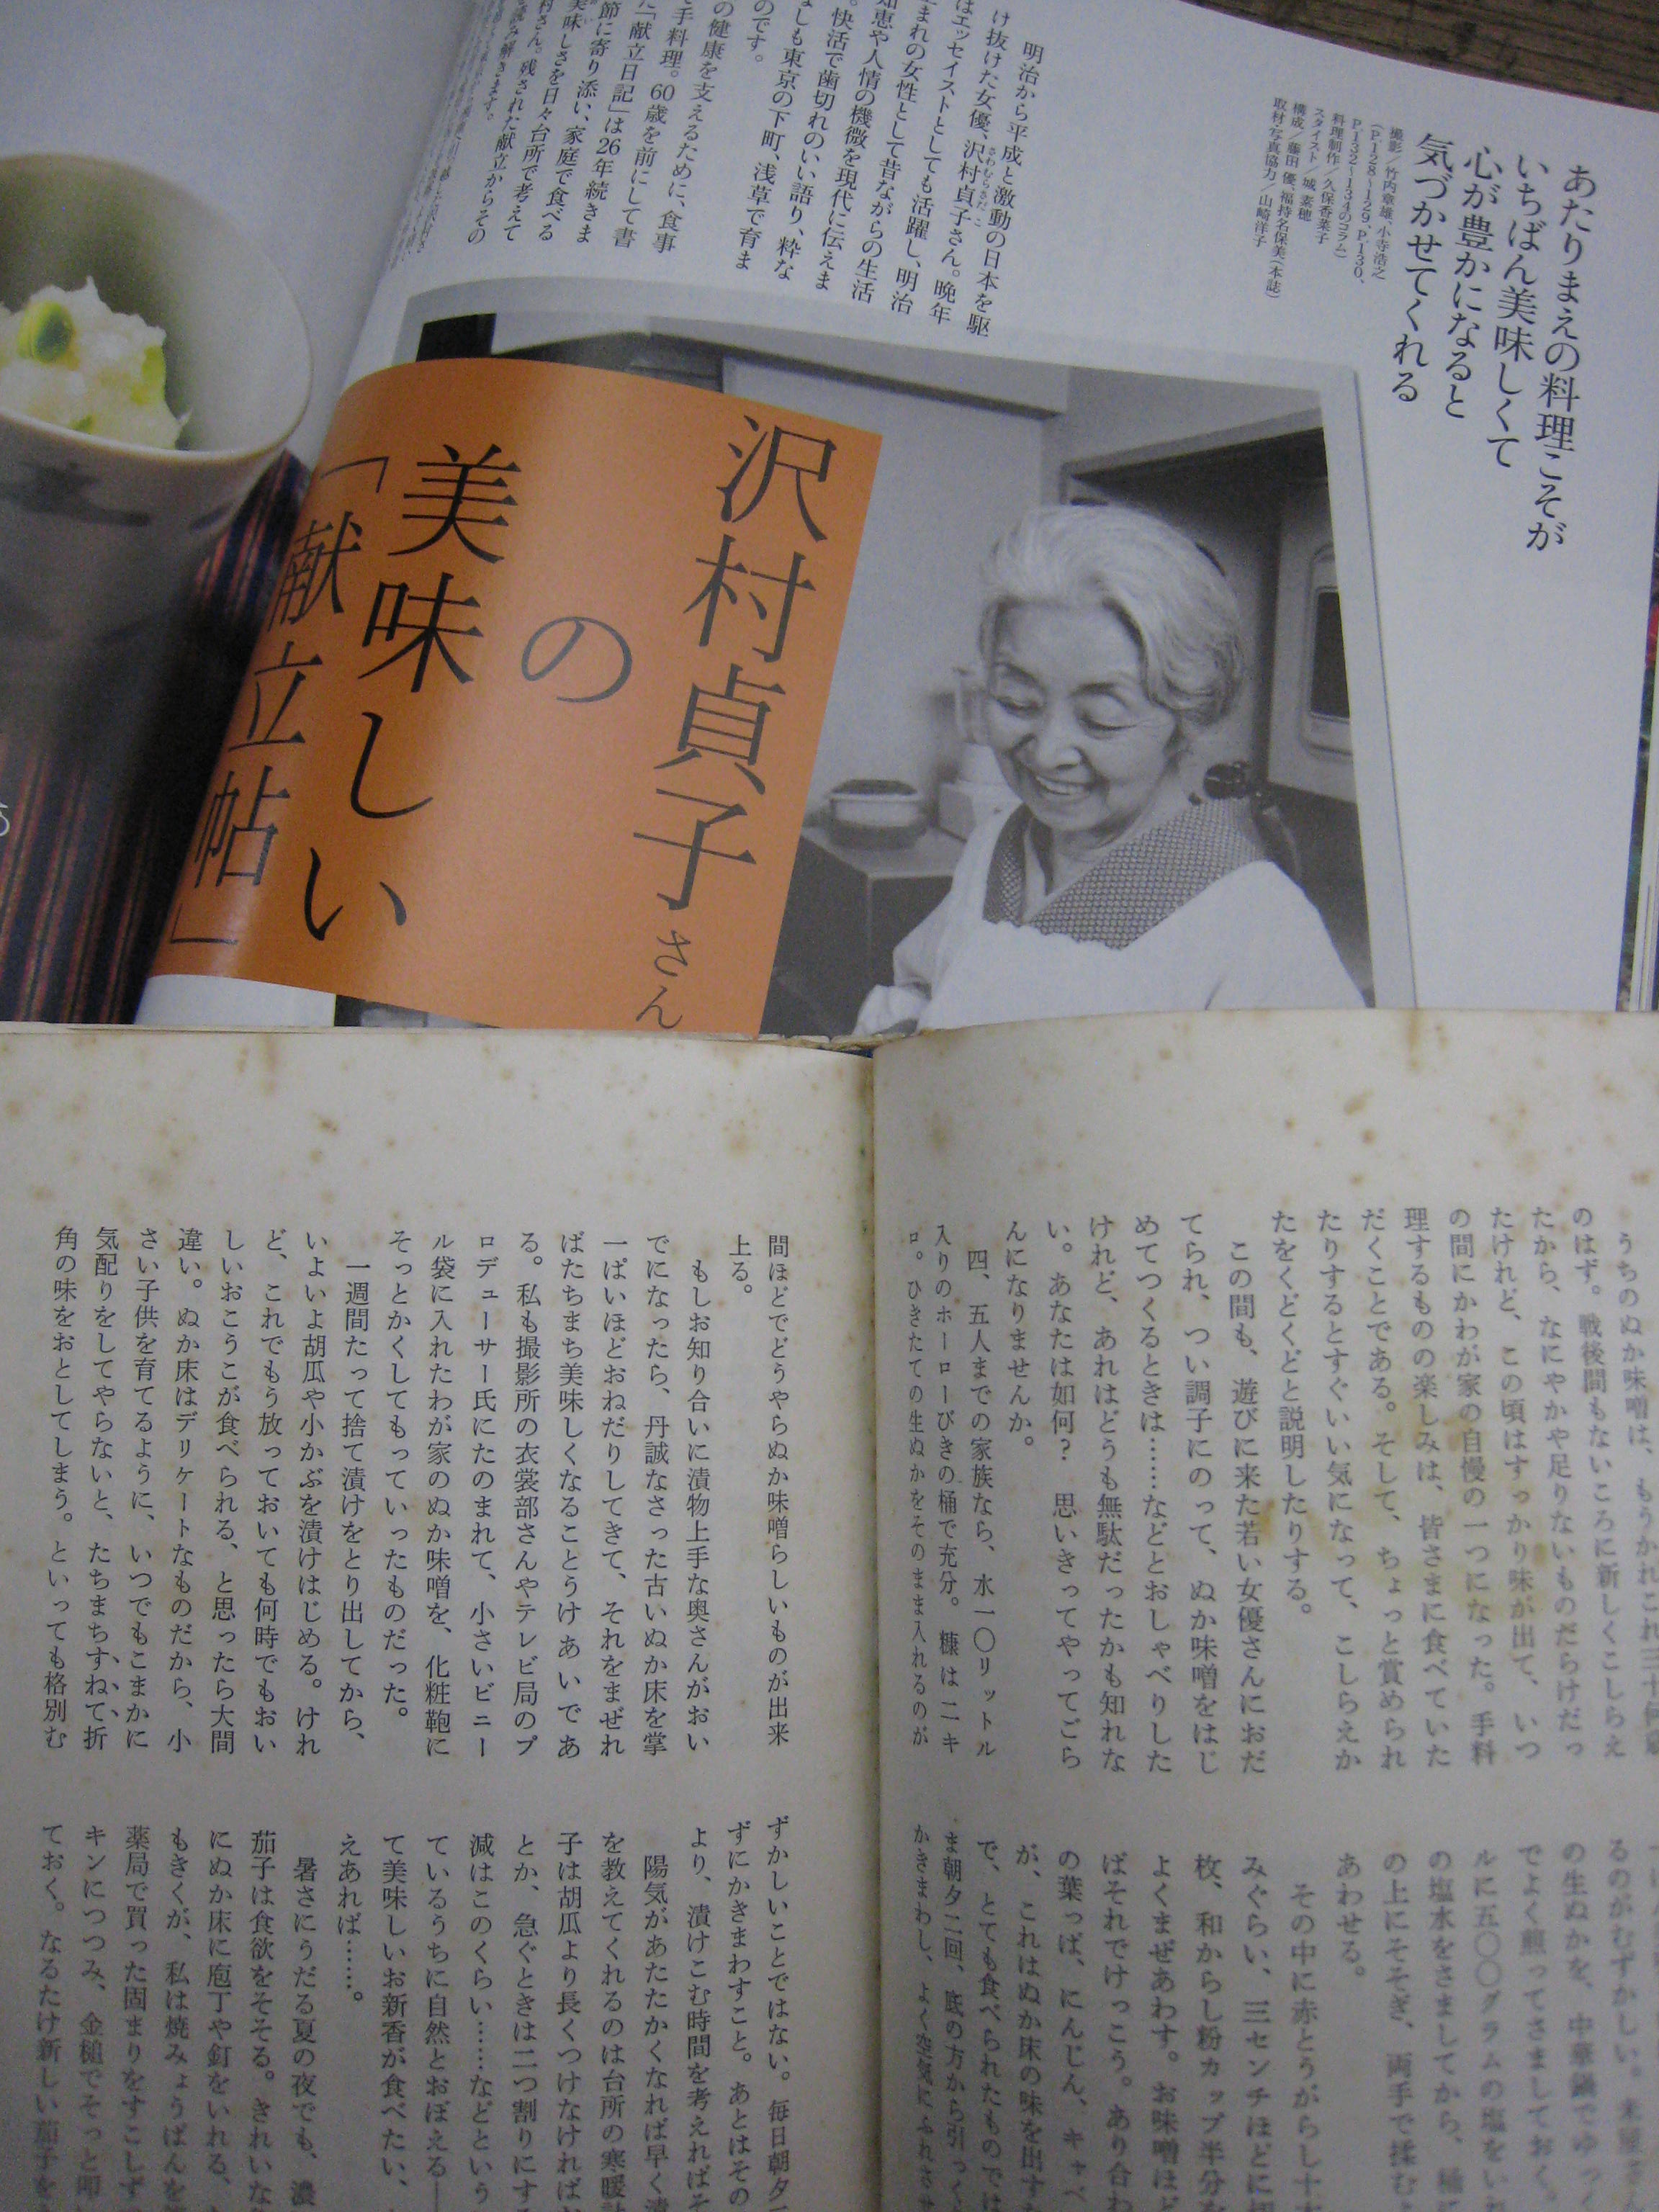 あたりまえの料理こそが
いちばん美味しくて
心が豊かになると
気づかせてくれる
撮影／竹内章雄、小寺浩之
(P.128〜129、P.130、
P.132〜134のコラム)
料理制作／久保香菜子
スタイスト／城 素穂
構成／藤田 優、福持名保美(本誌)
取材・写真協力／山崎洋子
明治から平成と激動の日本を駆
け抜けた女優、沢村貞子さん。晩年
はエッセイストとしても活躍し、明治
まれの女性として昔ながらの生活
知恵や人情の機微を現代に伝えま
快活で歯切れのいい語り、粋な
しも東京の下町、浅草で育ま
のです。
の健康を支えるために、食事
手料理。60歳を前にして書
「献立日記」は26年続きま
節に寄り添い、家庭で食べる
美味しさを日々台所で考えて
村さん。残された献立からその
み解きます。
沢村貞子さん
の
美味しい
「献立帖」
うちのぬか味噌は、もうかれこれ三十何
のはず。戦後間もないころに新しくこしらえ
たから、なにやかや足りないものだらけだっ
たけれど、この頃はすっかり味が出て、いつ
の間にかわが家の自慢の一つになった。手料
理するものの楽しみは、皆さまに食べていた
だくことである。そして、ちょっと賞められ
たりするとすぐいい気になって、こしらえか
たをくどくどと説明したりする。
この間も、遊びに来た若い女優さんにおだ
てられ、つい調子にのって、ぬか味噌をはじ
めてつくるときは……などとおしゃべりした
けれど、あれはどうも無駄だったかも知れな
い。あなたは如何？　思いきってやってごら
んになりませんか。
四、五人までの家族なら、水一〇リットル
入りのホーローびきの桶で充分。糠は二キ
ロ。ひきたての生ぬかをそのまま入れるのが
るのがむずかしい。
の生ぬかを、中華鍋でゆっ
でよく煎ってさましておく。
ルに五〇〇グラムの塩をい
の塩水をさましてから、桶
の上にそそぎ、両手で揉む
あわせる。
その中に赤とうがらし十本
みぐらい、三センチほどに切
枚、和からし粉カップ半分を
よくまぜあわす。お味噌ほど
ばそれでけっこう。あり合わ
の葉っぱ、にんじん、キャベ
が、これはぬか床の味を出す
で、とても食べられたものでは
ま朝夕二回、底の方から引っく
かきまわし、よく空気にふれさせ
間ほどでどうやらぬか味噌らしいものが出来
上る。
もしお知り合いに漬物上手な奥さんがおい
でになったら、丹誠なさった古いぬか床を掌
一ぱいほどおねだりしてきて、それをまぜれ
ばたちまち美味しくなることうけあいであ
る。私も撮影所の衣裳部さんやテレビ局のプ
ロデューサー氏にたのまれて、小さいビニー
ル袋に入れたわが家のぬか味噌を、化粧鞄に
そっとかくしてもっていったものだった。
一週間たって捨て漬けをとり出してから、
いよいよ胡瓜や小かぶを漬けはじめる。けれ
ど、これでもう放っておいても何時でもおい
しいおこうこが食べられる、と思ったら大間
違い。ぬか床はデリケートなものだから、小
さい子供を育てるように、いつでもこまかに
気配りをしてやらないと、たちまちすねて折
角の味をおとしてしまう。といっても格別む
ずかしいことではない。毎日朝夕二
ずにかきまわすこと。あとはその
より、漬けこむ時間を考えればそ
陽気があたたかくなれば早く漬
を教えてくれるのは台所の寒暖計
子は胡瓜より長くつけなければ
とか、急ぐときは二つ割りにす
減はこのくらい……などという
ているうちに自然とおぼえる—
て美味しいお新香が食べたい、
えあれば……。
暑さにうだる夏の夜でも、濃
茄子は食欲をそそる。きれいな
にぬか床に庖丁や釘をいれる、
もきくが、私は焼みょうばんを
薬局で買った固まりをすこしず
キンにつつみ、金槌でそっと叩
ておく。なるたけ新しい茄子を